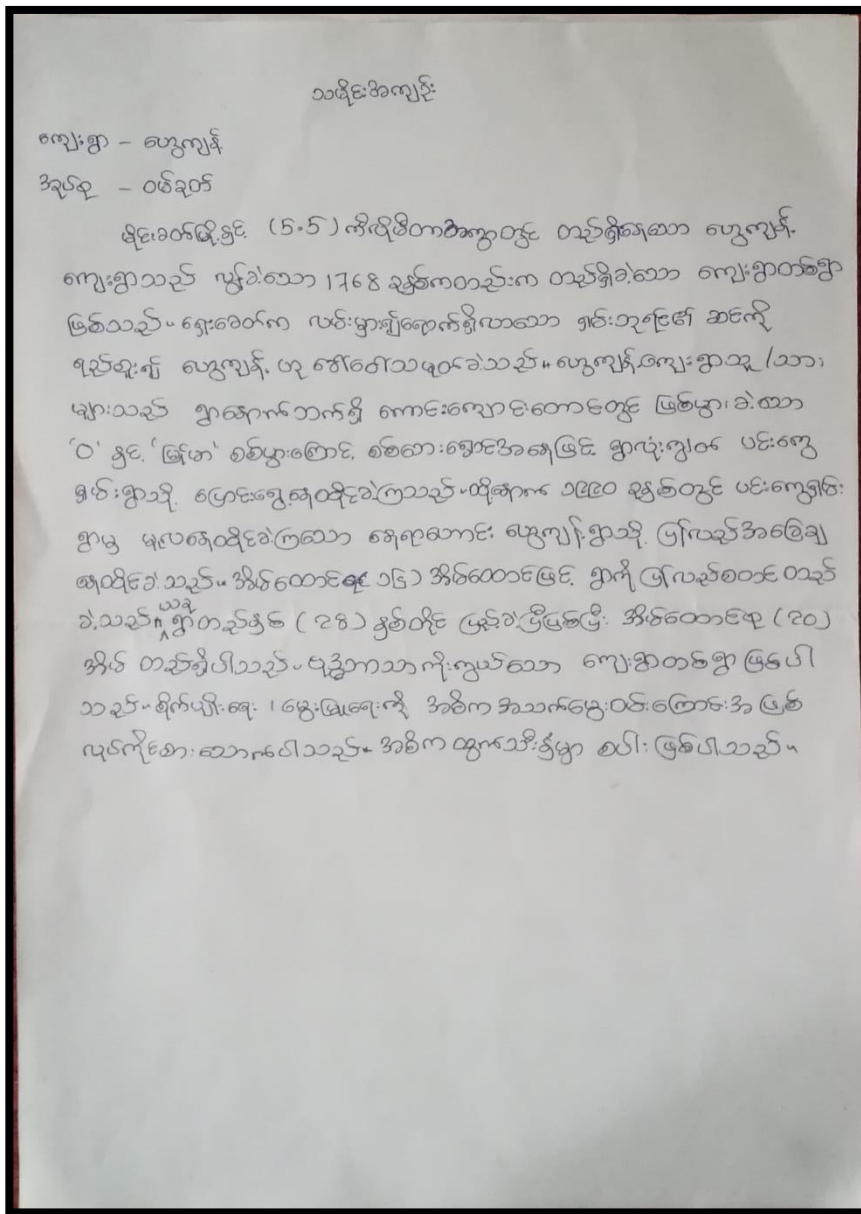 သမိုင်းအကျဉ်း
ကျေးရွာ - ဟွေ့ကျန့်
အုပ်စု - ဝမ်ခုတ်
မိုင်းခတ်မြို့နှင့် (5.5) ကီလိုမီတာအကွာတွင် တည်ရှိနေသော ဟွေ့ကျန့်
ကျေးရွာသည် လွန်ခဲ့သော 1768 ခုနှစ်ကတည်းက တည်ရှိခဲ့သော ကျေးရွာတစ်ရွာ
ဖြစ်သည်။ ရှေးခေတ်က လမ်းမှား၍ရောက်ရှိလာသော ရှမ်းဘုရင်၏ ဆင်ကို
ရည်ညွှန်း၍ ဟွေ့ကျန့် ဟု ခေါ်ဝေါ်သမုတ်ခဲ့သည်။ ဟွေ့ကျန့်ကျေးရွာသူ/သား
များသည် ရွာနောက်ဘက်ရှိ ကောင်းကျောင်းတောင်တွင် ဖြစ်ပွားခဲ့သော
'ဝ' နှင့် 'မြန်မာ' စစ်ပွဲကြောင့် စစ်ဘေးရှောင်အနေဖြင့် ရွာလုံးကျွတ် ပင်းကွေ့
ရှမ်းရွာသို့ ပြောင်းရွှေ့နေထိုင်ခဲ့ကြသည်။ ထို့နောက် ၁၉၉၀ ခုနှစ်တွင် ပင်းကွေ့ရှမ်း
ရွာမှ မူလနေထိုင်ခဲ့ကြသော နေရာဟောင်း ဟွေ့ကျန့်ရွာသို့ ပြန်လည်အခြေချ
နေထိုင်ခဲ့သည်။ အိမ်ထောင်စု ၁၆) အိမ်ထောင်ဖြင့် ရွာကို ပြန်လည်စတင် တည်
ခဲ့သည်။ ယခု ရွာတည်နှစ် (၃၄) နှစ်တိုင် ပြည့်ခဲ့ပြီဖြစ်ပြီး အိမ်ထောင်စု (၃၀)
အိမ် တည်ရှိပါသည်။ ဗုဒ္ဓဘာသာကိုးကွယ်သော ကျေးရွာတစ်ရွာ ဖြစ်ပါ
သည်။ စိုက်ပျိုးရေး ၊ မွေးမြူရေးကို အဓိက အသက်မွေးဝမ်းကြောင်းအဖြစ်
လုပ်ကိုင်စားသောက်ပါသည်။ အဓိက ထွက်သီးနှံမှာ စပါး ဖြစ်ပါသည်။